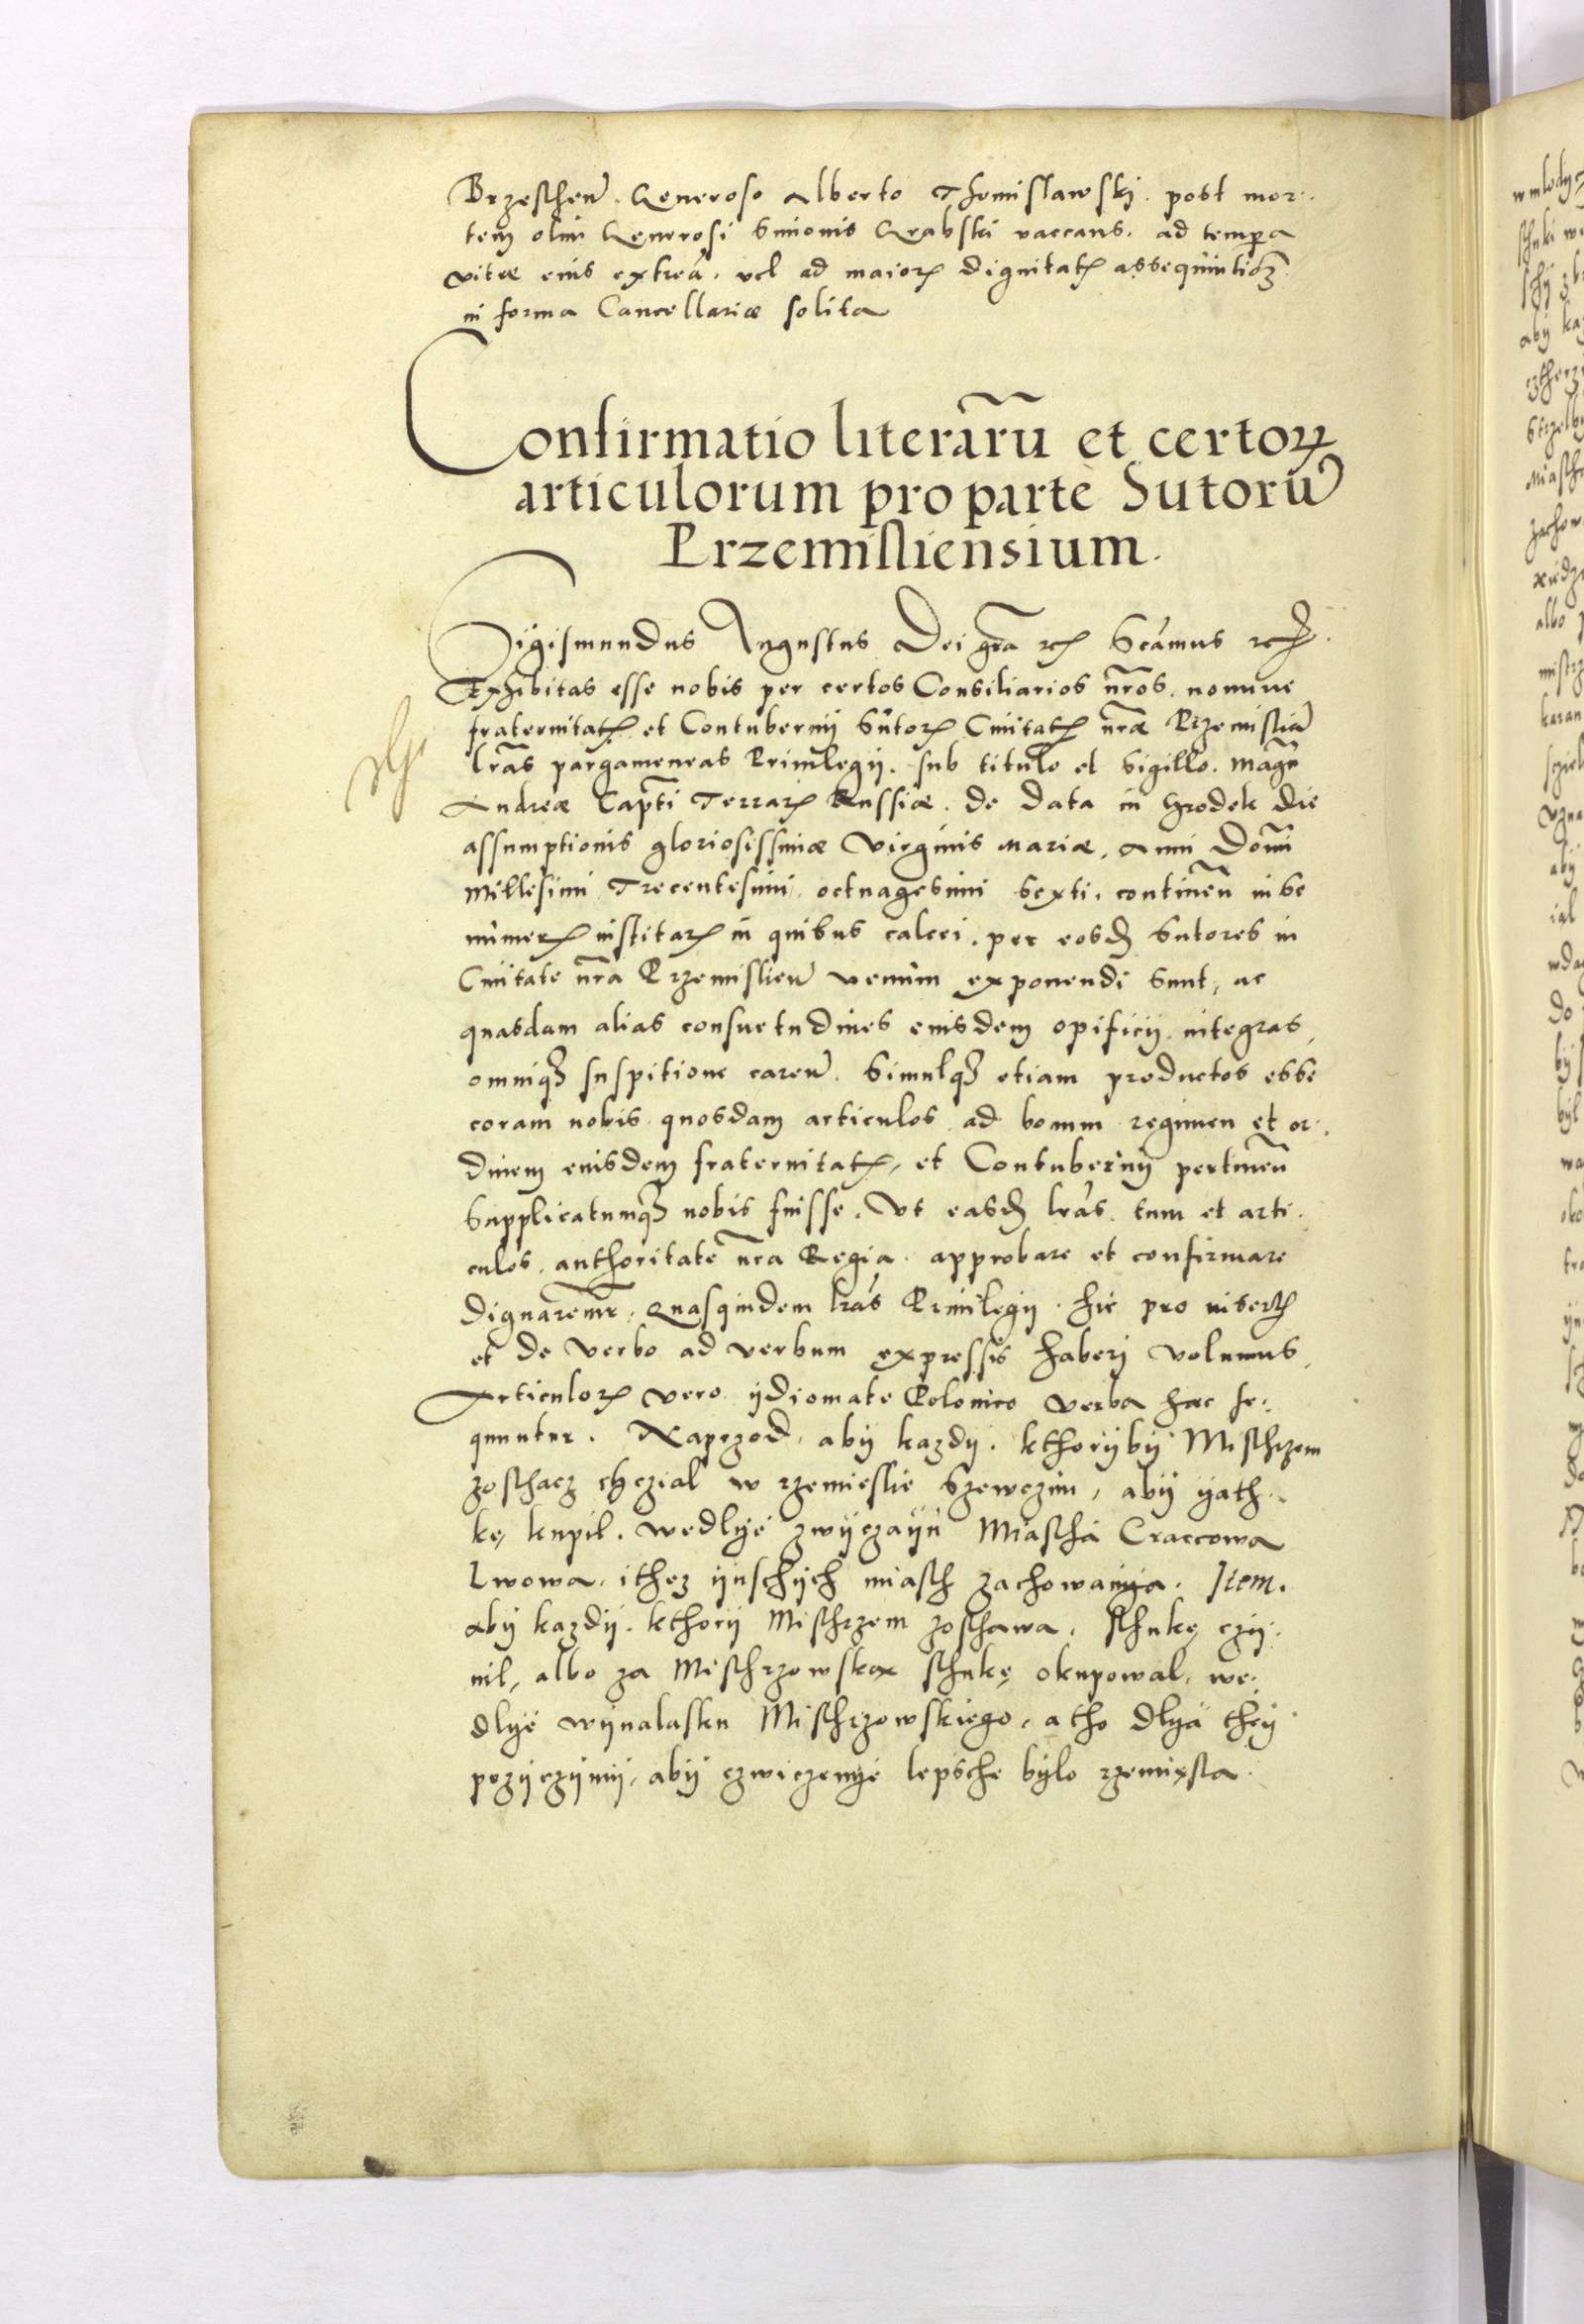 Brzeſcheñ. Generoso Alberto Thomislawſkj. post mor:
tem olim Generosi Simonis Grabſki vaccans. ad tempora
vitæ eius extrea. vel ad maiorem dignitatem assequutioēm
in forma Cancellariæ solita
Confirmatio literarū et certoꝝ
articulorum pro parte Sutorū
Przemiſliensium.
Sigismundus Augustus Dei gra etc. Scamus etc.
Exhibitas esse nobis per certos Consiliarios nros. nomine
fraternitatis et Contubernij Sutoꝝ Ciuitatis nræ Przemislieñ
lras pargameneas Priuilegij. sub titulo et Sigillo. Magn
Andreæ Capti Terraꝝ Russiæ. de data in Hrodek die
assumptionis gloriosissimæ Virginis Mariæ, Anni Domi
Millesimi Trecentesimi octuagesimi Sexti. continen in se
numerum institaꝝ in quibus calcei. per eosd Sutores in
Ciuitate nra Przemislień venum exponendi sunt, ac
quasdam alias consuetudines eiusdem opificij integras,
omniqȝ suspitione careñ. Simulqȝ etiam productos esse
coram nobis quosdam articulos ad bonum regimen et or:
dinem eiusdem fraternitatis, et Contubernij pertineñ
Supplicatumqȝ nobis fuisse. Vt easd lras. tum et arti:
culos. authoritate nra Regia. approbare et confirmare
dignaremur. Quasquidem lras Priuilegij. hic pro insertis
et de verbo ad verbum expressis haberj volumus,
Articuloꝝ vero ydiomate Polonico verba hæc se:
quuntur. Naprzod, aby kazdy. kthoryby Miſchrzem
zoſchacz chczial w rzemieſlie Szewczim, aby yath:
kę kupil. wedlye zwyczayu Miaſcha Craccowa
Lwowa. ithez ynſchych miaſch zachowanya. Item.
Aby kazdy. kthory Miſchrzem zoſchawa, ſchukę czy:
nil, albo za Miſchrzowska ſchukę okupowal, we:
dlye wynalasku Miſchrzowskiego, a tho dlya they
przyczyny, aby czwiczenye lepſche bylo rzemięſla.